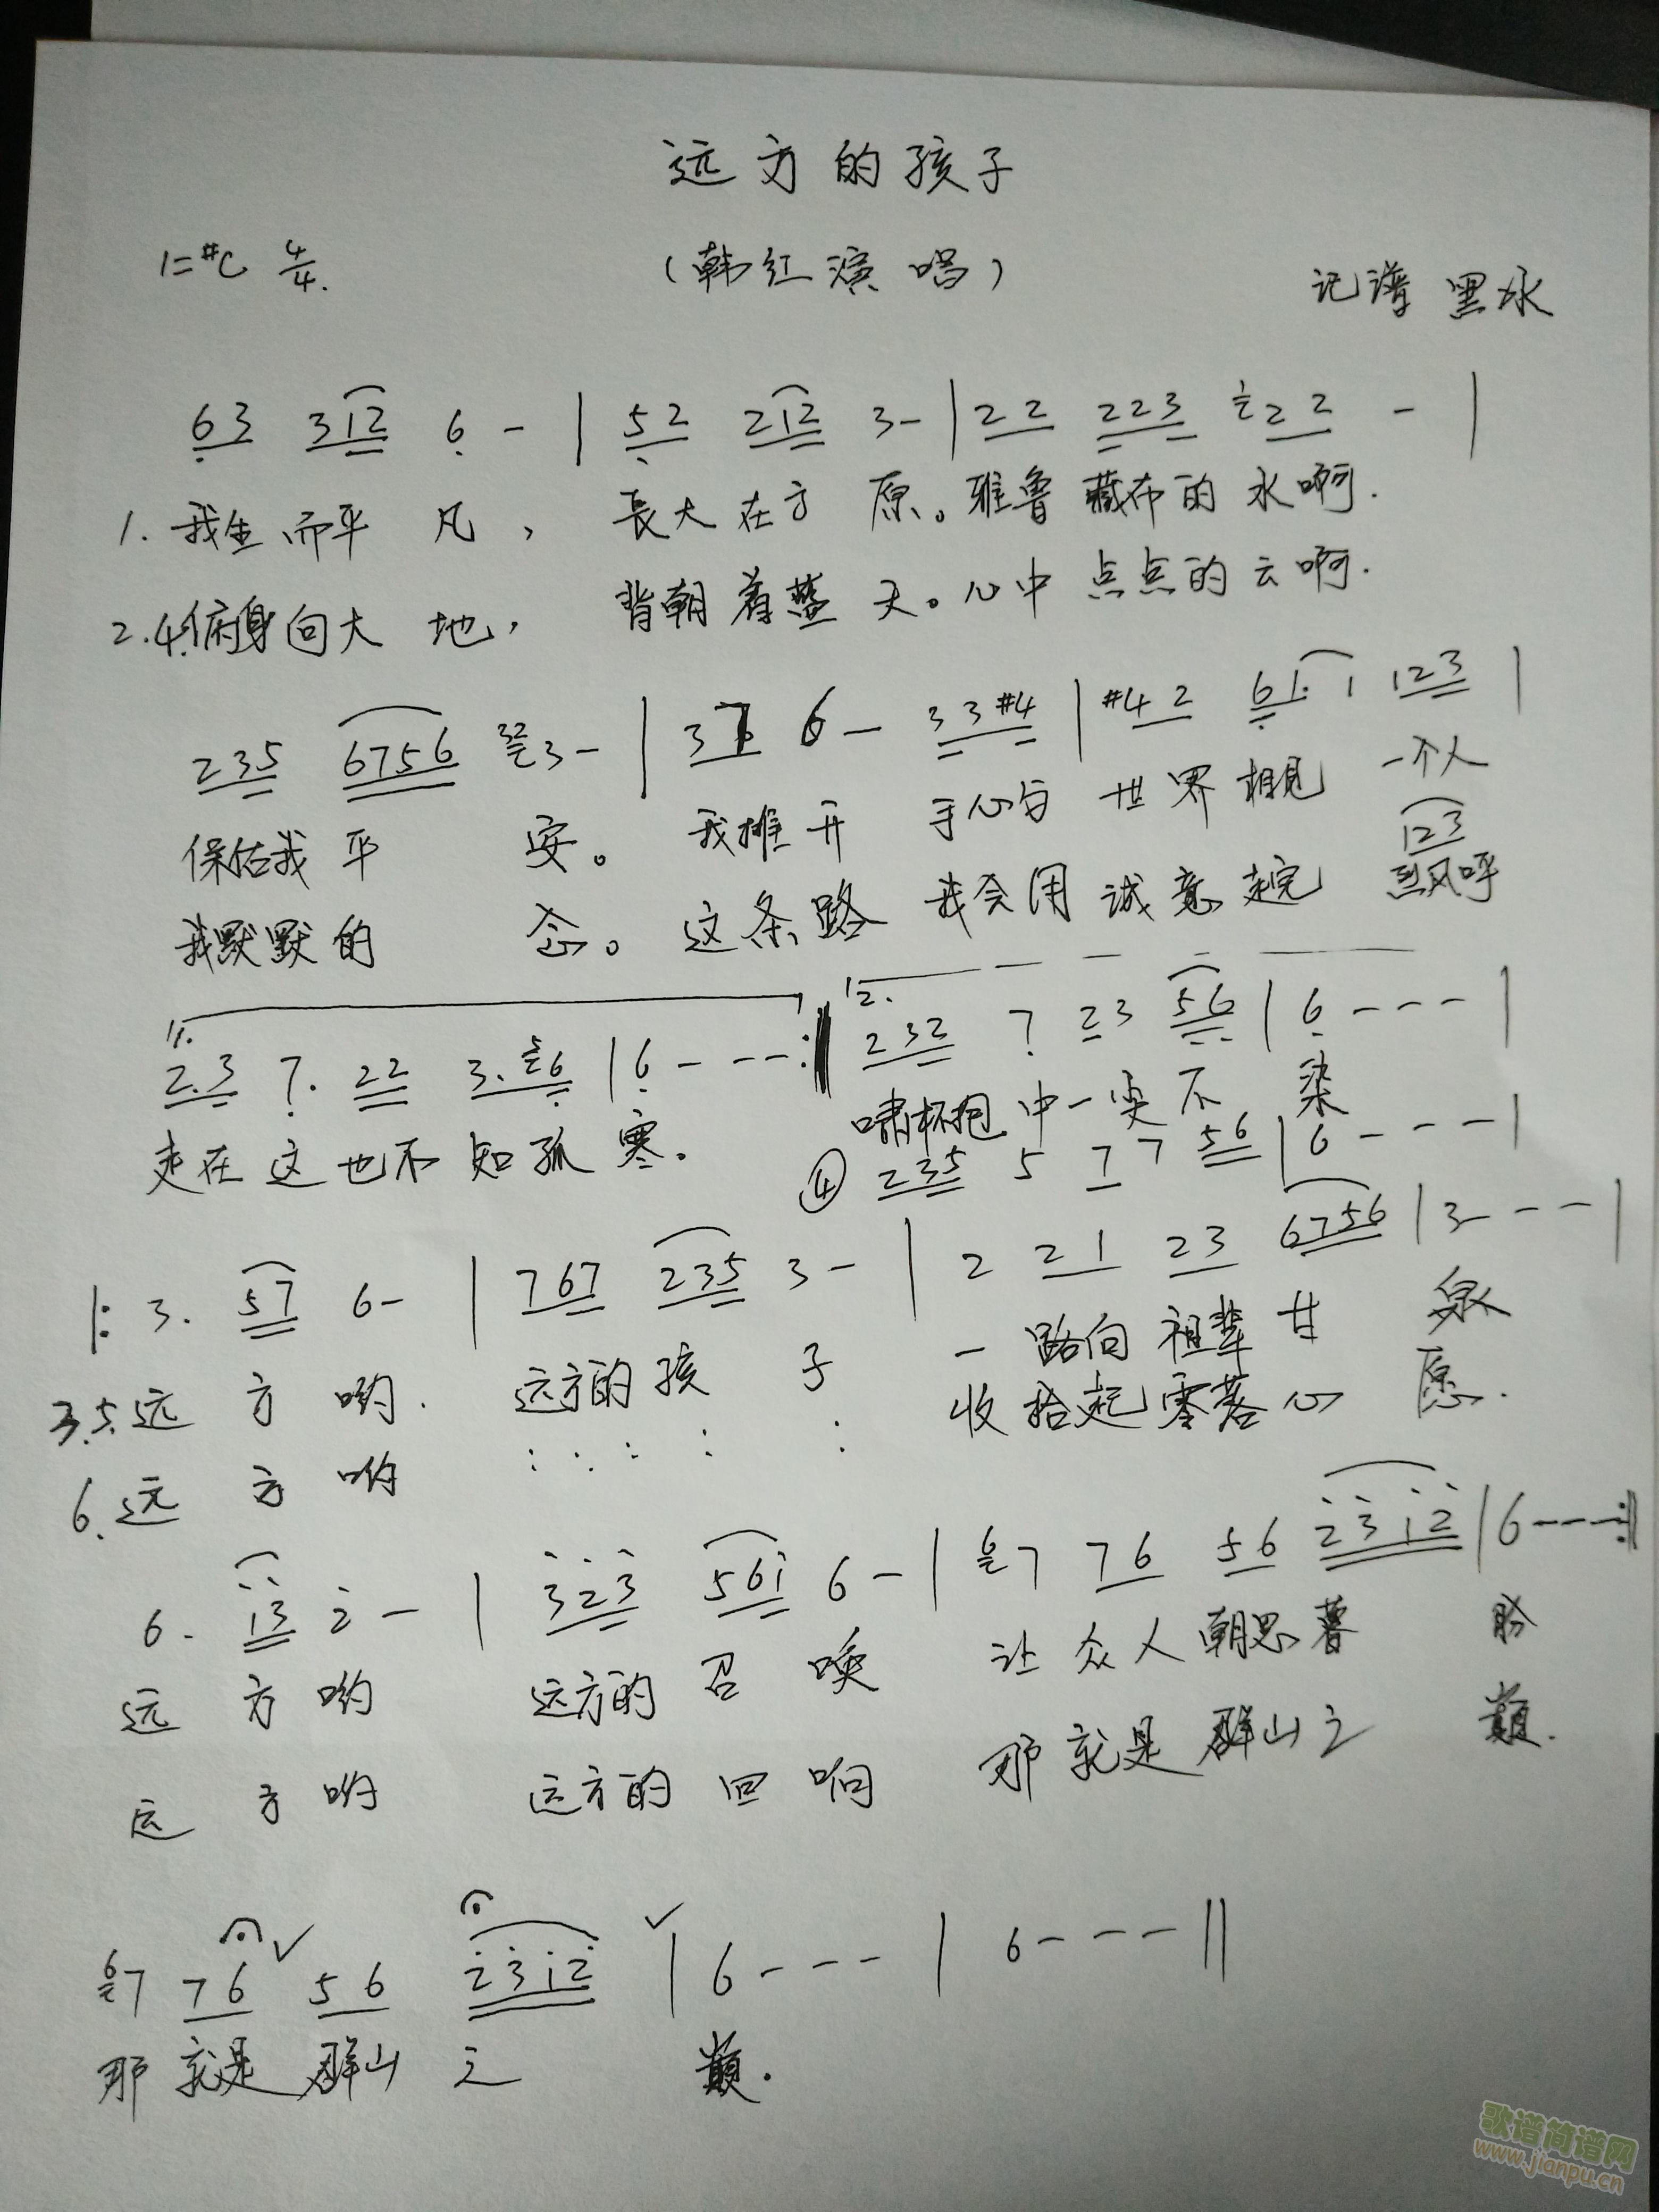 远方的孩子
1=#C 4/4.
(韩红演唱)
记谱 黑冰
63 312 6 - | 52 212 3- | 22 223 122 - |
1. 我生而平 凡, 長大在方 原。雅鲁藏布的水啊.
2.4.俯身向大 地, 背朝着蓝 天。心中点点的云啊.
235 6756 323- | 37 6- 33#4 | #42 61. 1 123 |
保佑我平 安。 我推开 手心与 世界相见 一个人
123
我默默的 念。 这条路 我会用 诚意走完 烈风呼
1. 2.
2.3 7. 22 3.56 | 6 - - - :‖ 232 7 23 56 | 6 - - - |
走在这也不知孤寒。 啸怀抱中一尘不 染
④ 235 5 7 7 56 | 6 - - - |
|: 3. 57 6- | 767 235 3- | 2 21 23 6756 | 3 - - - |
3.5.远 方 哟. 远方的孩 子 一 路向祖辈甘 泉
6.远 方 哟 : : : : : 收拾起零落心 愿.
6. 13 2 - | 323 561 6 - | 67 76 56 2312 | 6 - - - :‖
远 方 哟 远方的召 唤 让 众人朝思暮 盼
远 方 哟 远方的回 响 那就是群山之 巅.
67 76 ✓ 56 2312 ✓ | 6 - - - | 6 - - - ‖
那就是群山 之 巅.
歌谱简谱网
www.jianpu.cn